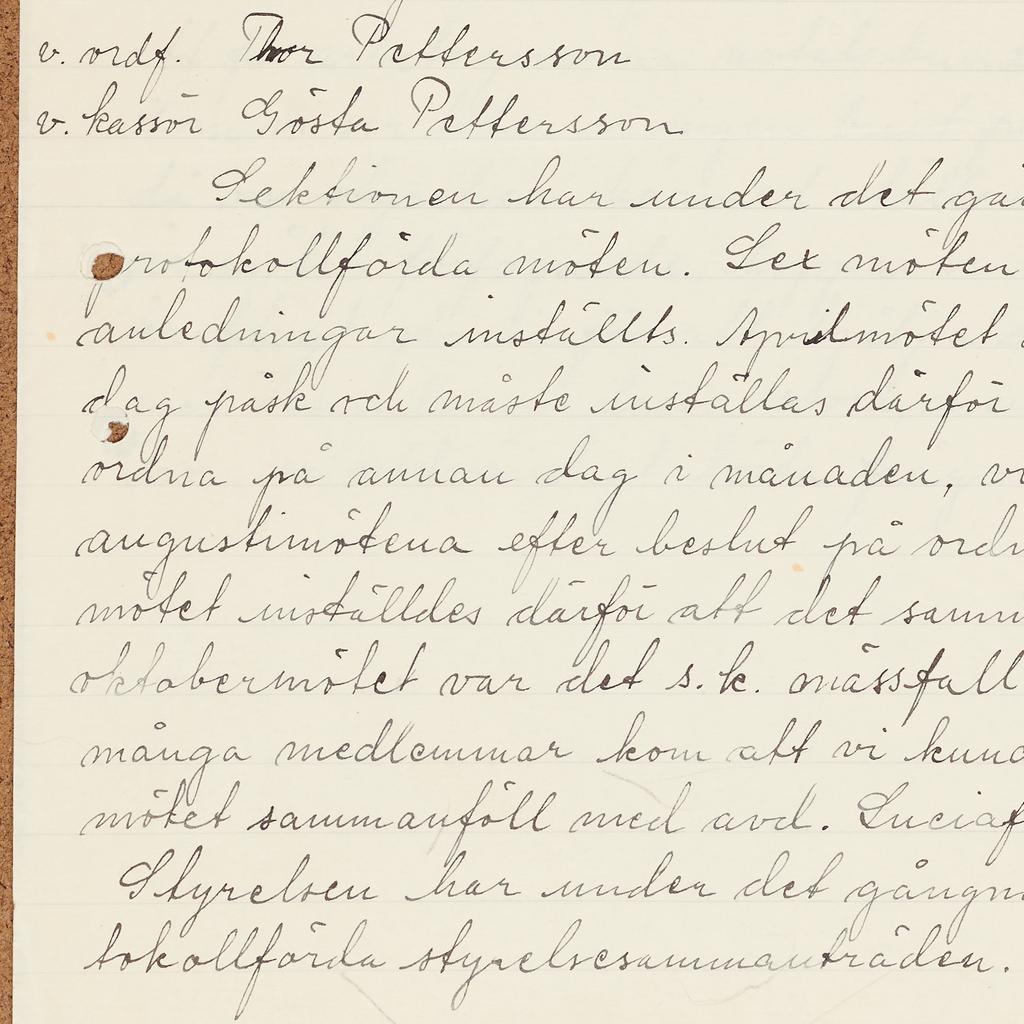 v. ordf. Thor Pettersson
v. kassör Gösta Pettersson
Sektionen har under det gå
protokollförda möten. Sex möten
anledningar inställts. Aprilmötet
dag påsk och måste inställas därför
ordna på annan dag i månaden, v
augustimötena efter beslut på ordn
mötet inställdes därför att det samm
oktobermötet var det s.k. mässfall
många medlemmar kom att vi kund
mötet sammanföll med avd. Luciaf
Styrelsen har under det gångn
tokollförda styrelsesammanträden.